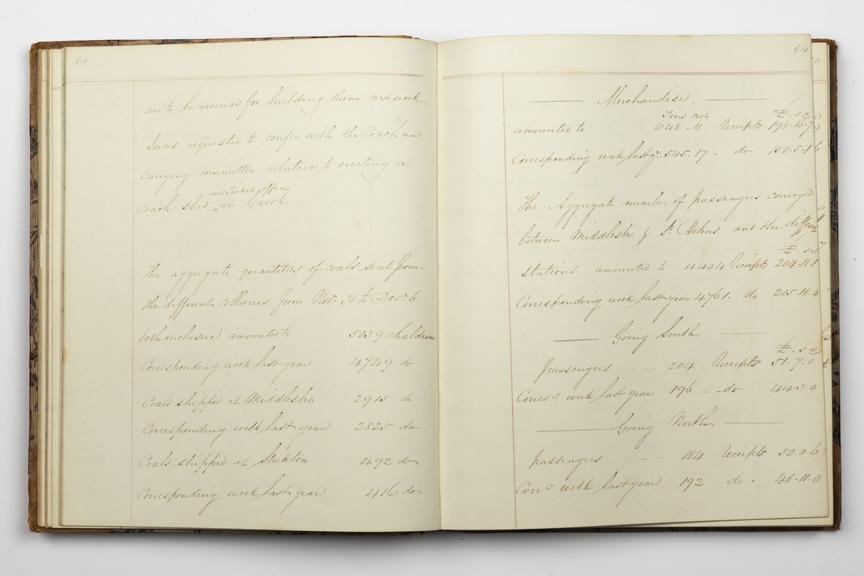 63
are to be received for building them next week.
I was requested to confer with the Coach and
carrying committee relative to erecting a
and Ticket office
Coach shed at Crook.
The aggregate quantities of coals sent from
the different collieries from Nov. to Decr. 6
both inclusive amounted to 5039 chaldrons
Corresponding week last year 4749 do
Coals shipped at Middlesbro 2915 do
Corresponding week last year 2825 do
Coals shipped at Stockton 492 do
Corresponding week last year 416 do
64
Merchandise.
Tons cwt £ s d
amounted to 648 - 11 Receipts
Corresponding week last yr. 545. 17 - do 150. 5. 6
The Aggregate number of passengers conveyed
between Middlesbro & St. Helens and the
£ s d
stations amounted to 4404 Receipts 204. 18. 1
Corresponding week last year 4761. do 205. 18. 4
Going South
£ s d
passengers - - - 204 Receipts 51. 7. 0
Corresg week last year 196 - - do 44. 3. 0
Going North
passengers - - - 184 Receipts 50. 0. 6
Corrg week last year 192 do - 45. 11. 0